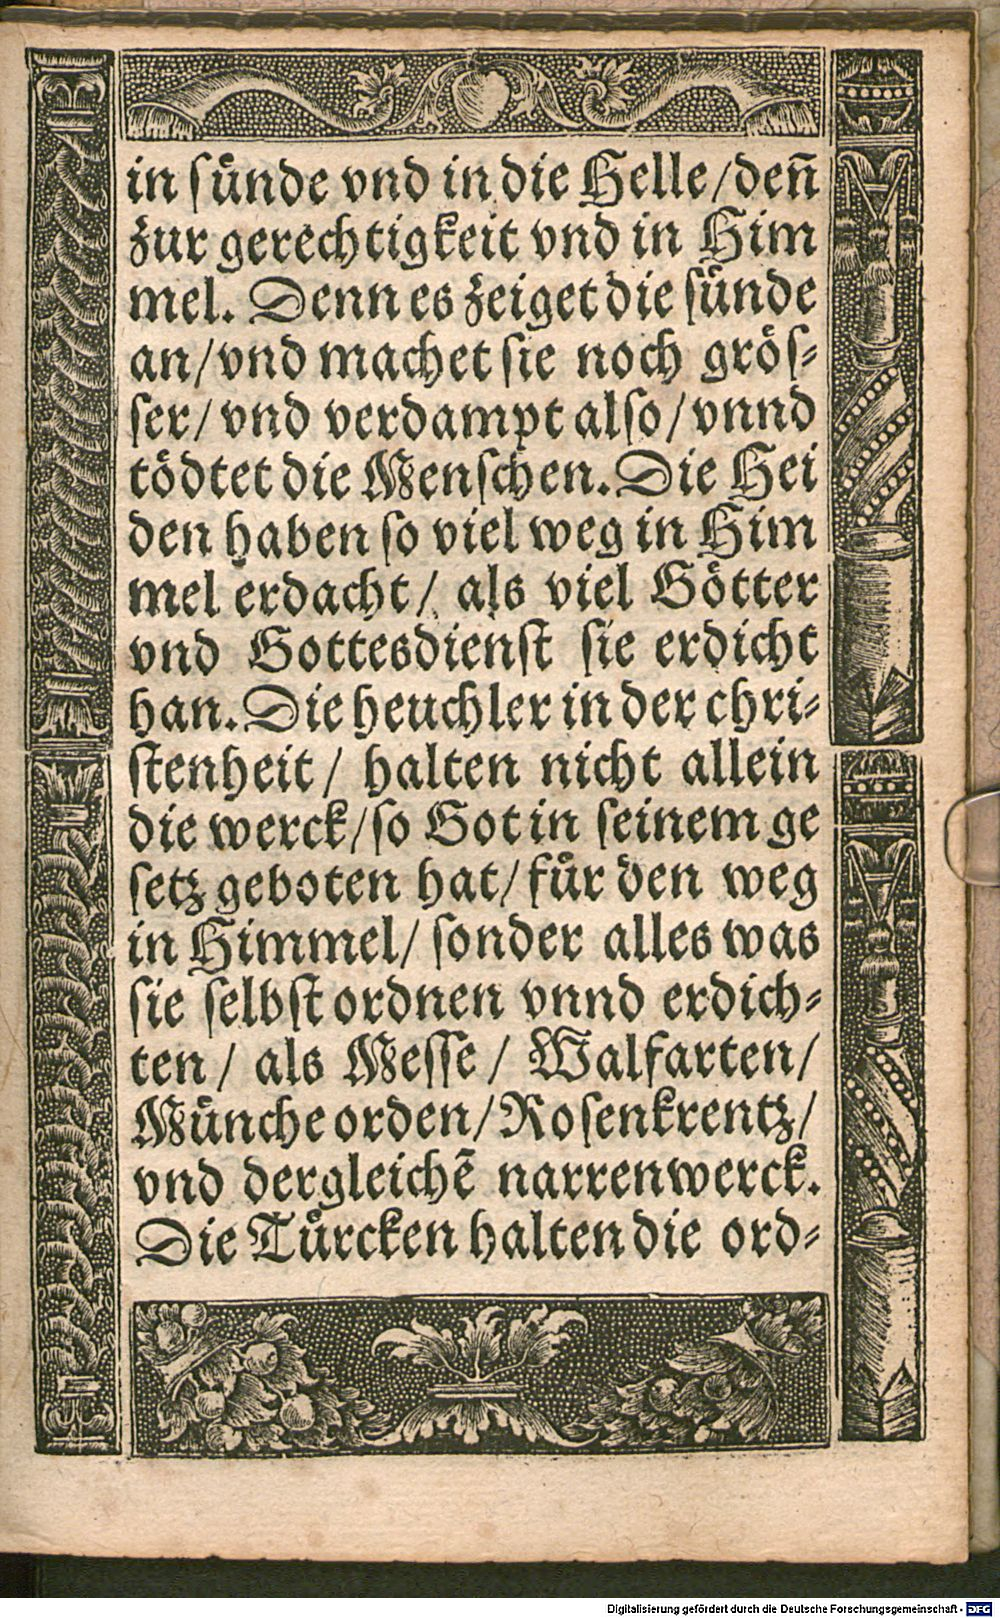 in ſuͤnde vnd in die Helle/den̄
zur gerechtigkeit vnd in Him
mel. Denn es zeiget die ſuͤnde
an/vnd machet ſie noch groͤſ⸗
ſer/ vnd verdampt alſo/ vnnd
toͤdtet die Menſchen. Die Hei
den haben ſo viel weg in Him
mel erdacht/ als viel Goͤtter
vnd Gottesdienſt ſie erdicht
han. Die heuchler in der chri⸗
ſtenheit/ halten nicht allein
die werck/ſo Got in ſeinem ge
ſetz geboten hat/fuͤr den weg
in Himmel/ ſonder alles was
ſie ſelbſt ordnen vnnd erdich⸗
ten/ als Meſſe/ Walfarten/
Muͤnche orden/Roſenkrentz/
vnd dergleichē narrenwerck.
Die Tuͤrcken halten die ord⸗
Digitalisierung gefördert durch die Deutsche Forschungsgemeinschaft - DFG